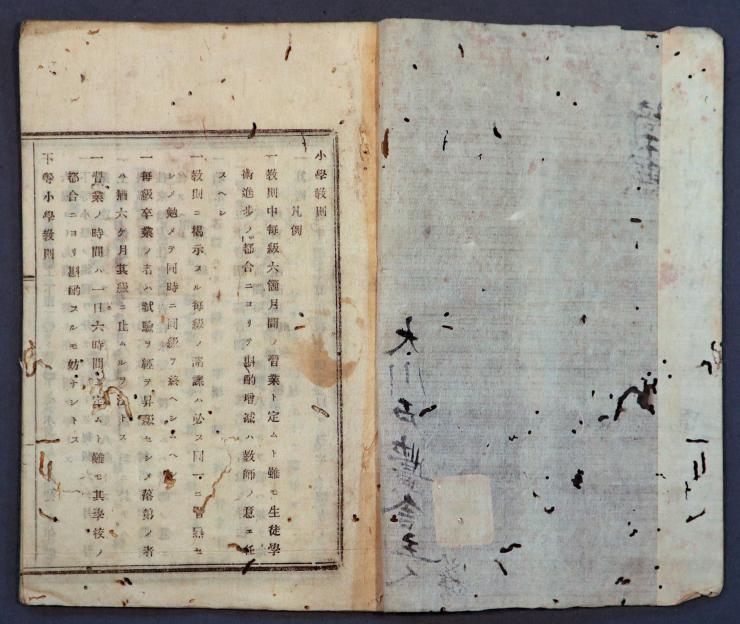 小學敎則
凡例
一敎則中每級六箇月間ノ習業ト定ムト雖モ生徒學
術進步ノ都合ニヨリテ斟酌增減ハ敎師ノ意ニ任
スヘシ
一敎則ニ揭示スル每級ノ諸課ハ必ス同一ニ習熟セ
シメ勉メテ同時ニ同級ヲ終ヘシムヘシ
一每級卒業ノ者ハ試驗ヲ經テ昇級セシメ落第ノ者
ハ猶六ケ月其級ニ止ムル
一習業ノ時間ハ一日六時間ト定ムト雖モ其學校ノ
都合ニヨリ斟酌スルモ妨ケナシトス
下等小學敎則
大川